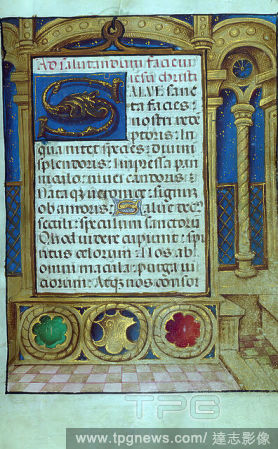 Ad salutandum faciem
iesu christi
SALVE sanc
ta facies:
nostri redē
ptoris: In
qua nitet species: diuini
splendoris: Impressa pan
niculo: niuei candoris:
Dataq; ueronice: signum
ob amoris: Salue dec9
seculi: speculum sanctorū
Quod uidere cupiunt: spi
ritus celorum: Nos ab
omni macula: purga ui
ciorum: Atq; nos consor
TPG
www.tpgnews.com/ 達志影像